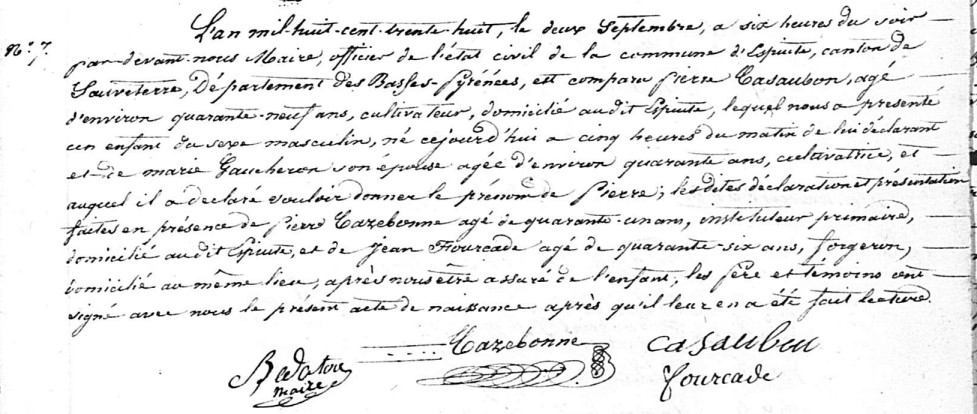 L'an mil-huit-cent-trente-huit, le deux Septembre, a six heures du soir
N.° 7. par-devant-nous Maire, officier de l'état civil de la commune d'Espiute, canton de
Sauveterre, Département des Basses-Pyrénées, est comparu Pierre Casaubon, agé
d'environ quarante-neuf ans, cultivateur, domicilié audit Espiute, lequel nous a présenté
un enfant du sexe masculin, né cejourd'hui a cinq heures du matin de lui déclarant
et de marie Gaucheron son épouse agée d'environ quarante ans, cultivatrice, et
auquel il a déclaré vouloir donner le prénom de Pierre; les dites déclaration et présentation
faites en présence de Pierre Cazebonne agé de quarante-un ans, instituteur primaire,
domicilié audit Espiute, et de Jean Fourcade agé de quarante-six ans, forgeron,
domicilié au même lieu, après nous être assuré de l'enfant, les père et témoins ont
signé avec nous le présent acte de naissance après qu'il leur en a été fait lecture.
Cazebonne casaubon
maire fourcade